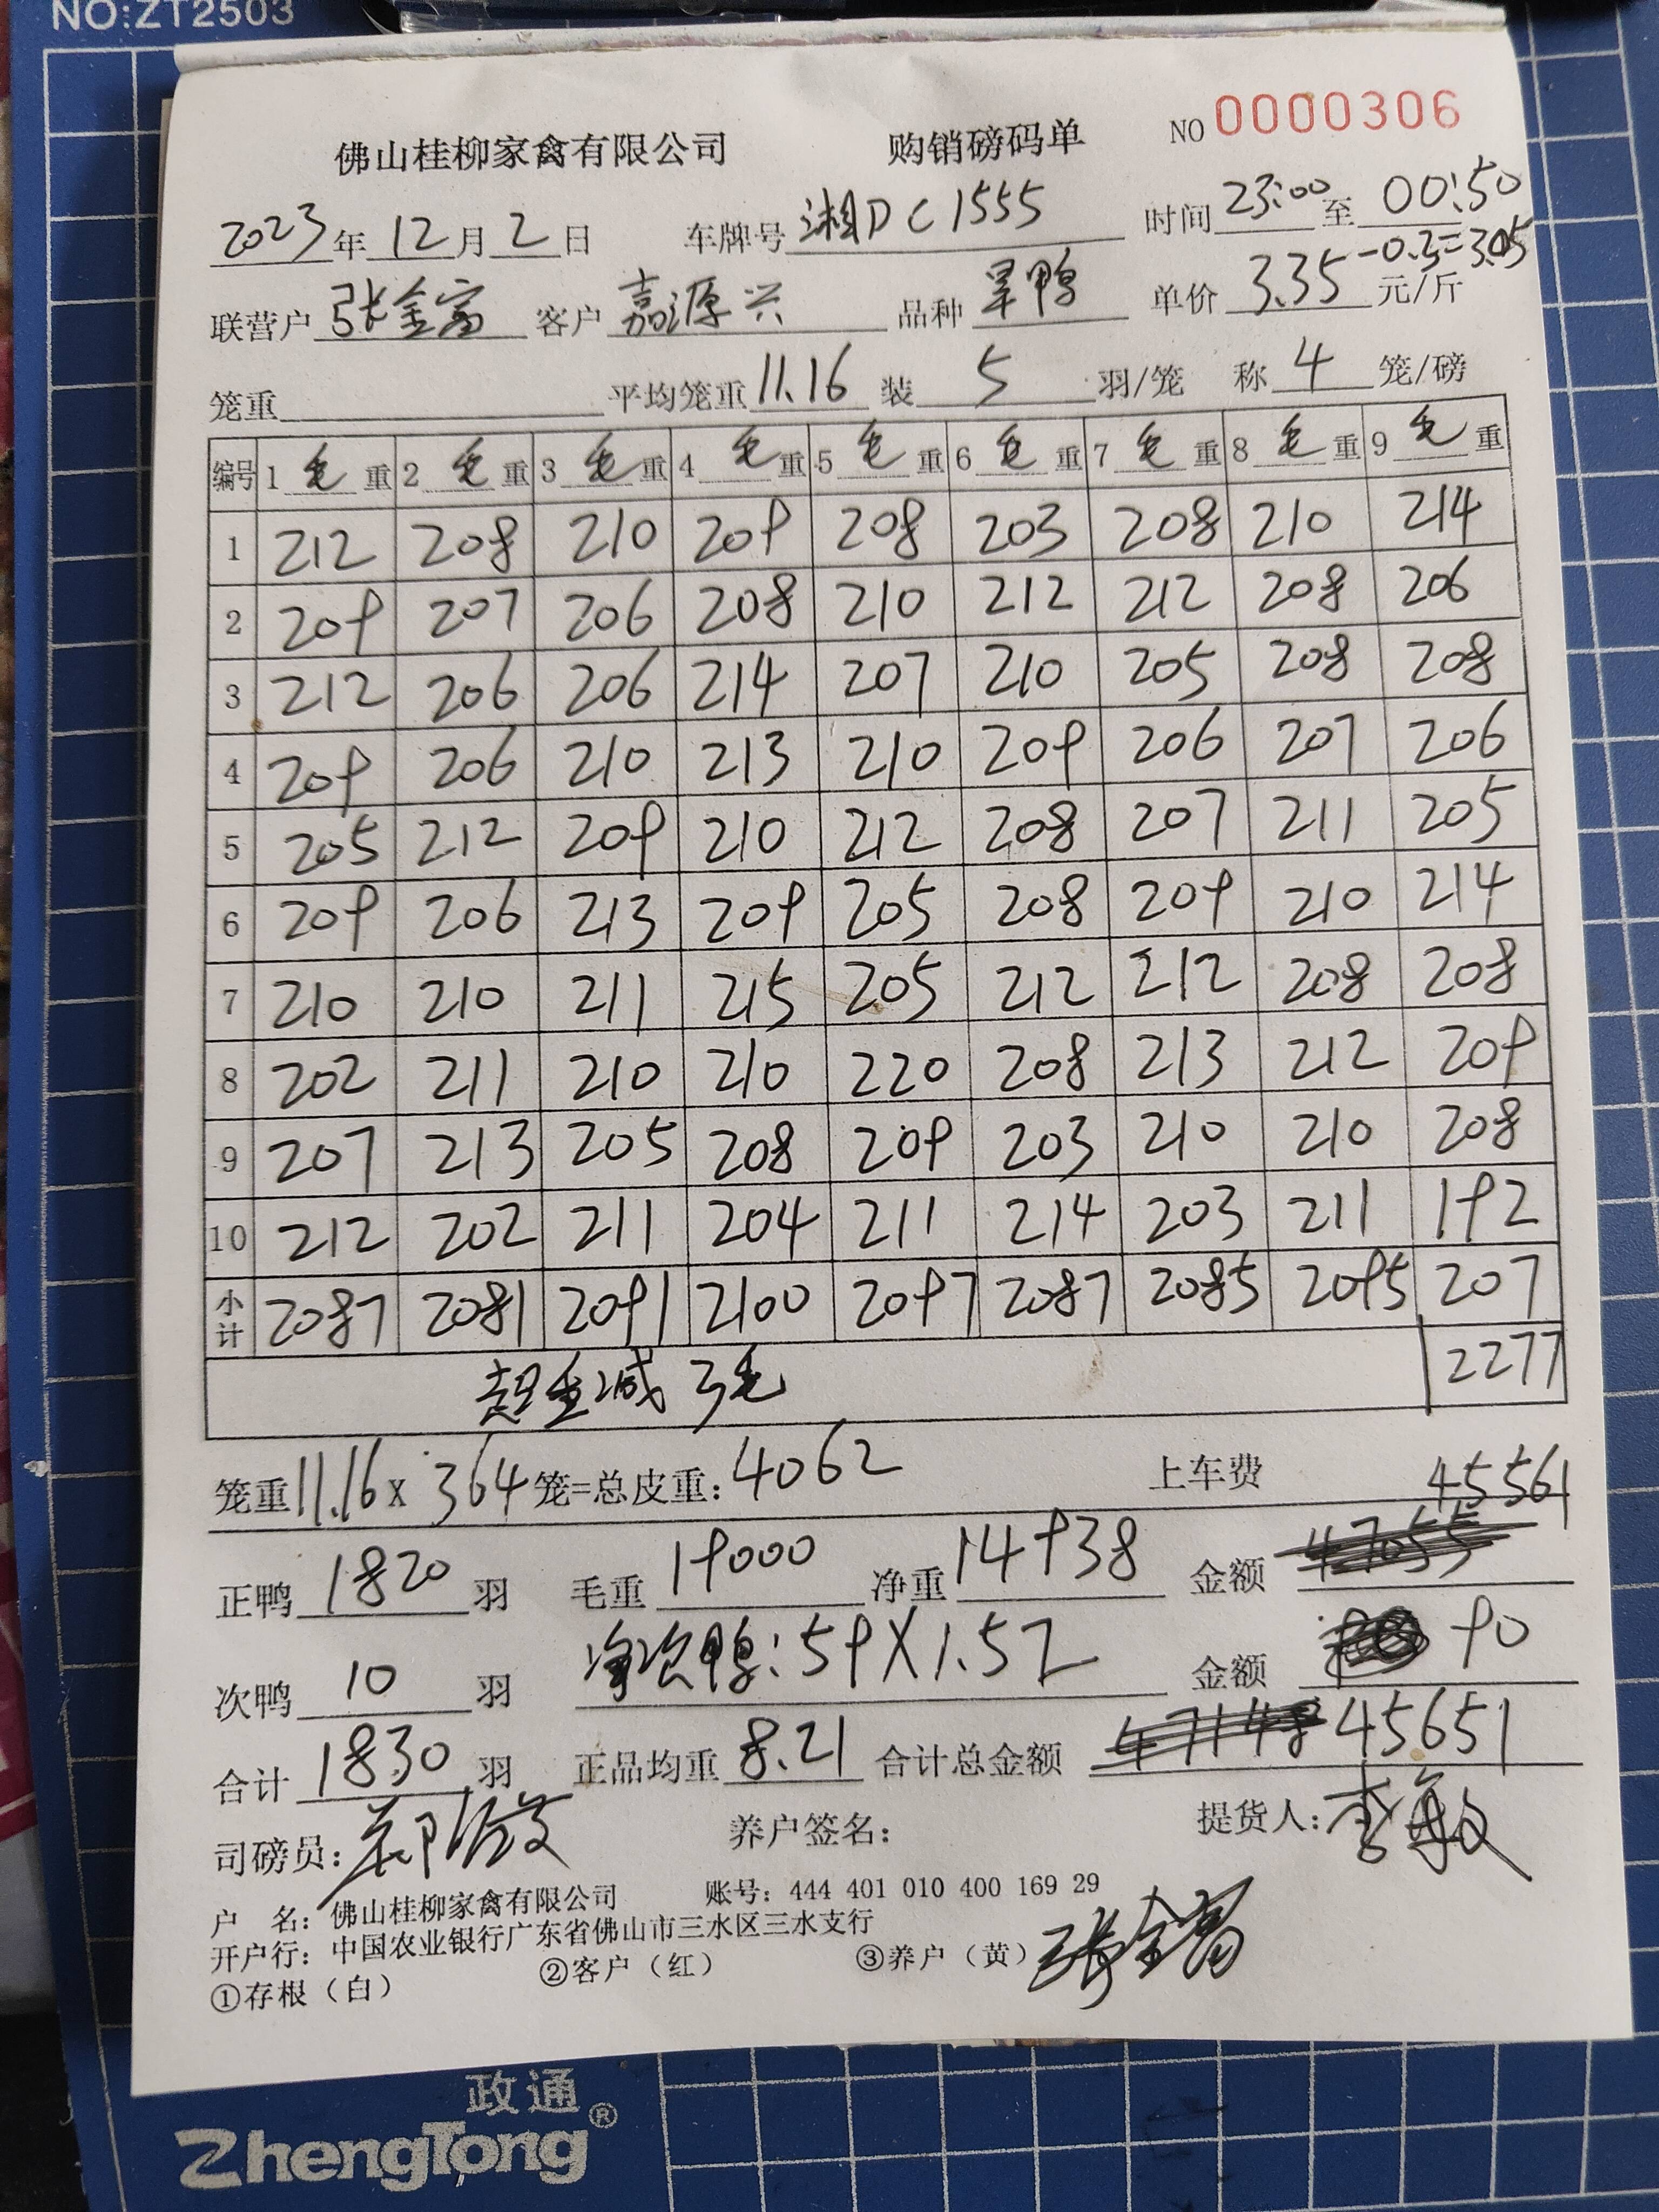 NO:ZT2503
佛山桂柳家禽有限公司 购销磅码单 NO 0000306
2023年12月2日 车牌号 湘DC1555 时间 23:00 至 00:50
联营户 张金富 客户 嘉源兴 品种 旱鸭 单价 3.35-0.3=3.05 元/斤
笼重 平均笼重 11.16 装 5 羽/笼 称 4 笼/磅
编号 1 毛 重 2 毛 重 3 毛 重 4 毛 重 5 毛 重 6 毛 重 7 毛 重 8 毛 重 9 毛 重
1 212 208 210 209 208 203 208 210 214
2 209 207 206 208 210 212 212 208 206
3 212 206 206 214 207 210 205 208 208
4 209 206 210 213 210 209 206 207 206
5 205 212 209 210 212 208 207 211 205
6 209 206 213 209 205 208 209 210 214
7 210 210 211 215 205 212 212 208 208
8 202 211 210 210 220 208 213 212 209
9 207 213 205 208 209 203 210 210 208
10 212 202 211 204 211 214 203 211 192
小计 2087 2081 2091 2100 2097 2087 2085 2095 207
超重减3毛 2277
笼重 11.16 x 364 笼=总皮重: 4062 上车费
45561
正鸭 1820 羽 毛重 19000 净重 14938 金额 47055
次鸭 10 羽 净次鸭:59X1.52 金额 90
合计 1830 羽 正品均重 8.21 合计总金额 47148 45651
司磅员: 养户签名: 提货人: 李敏
户 名: 佛山桂柳家禽有限公司 账号: 444 401 010 400 169 29
开户行: 中国农业银行广东省佛山市三水区三水支行
①存根（白） ②客户（红） ③养户（黄） 张金富
政通
ZhengTong®